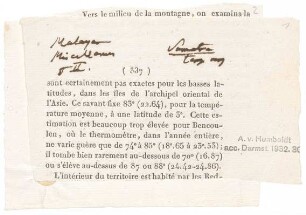 Vers le milieu de la montagne, on examina la
2
Malayan
Miscellanies
Sumatra
( 337 )
sont certainement pas exactes pour les basses lati-
tudes, dans les îles de l'archipel oriental de
l'Asie. Ce savant fixe 83° (22.64), pour la tempé-
rature moyenne, à une latitude de 3°. Cette es-
timation est beaucoup trop élevée pour Bencou-
len, où le thermomètre, dans l'année entière,
ne varie guère que de 74° à 85° (18.65 à 23.55);
il tombe bien rarement au-dessous de 70° (16.87)
ou s'élève au-dessus de 87 ou 88° (24.42-24.86).
L'intérieur du territoire est habité par les Red-
A. v. Humboldt
acc. Darmst. 1932.